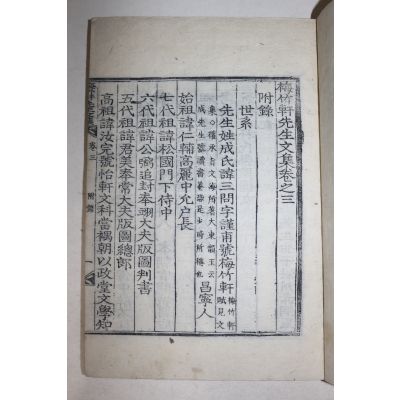 梅竹軒先生文集卷之三
附錄
世系
先生姓成氏諱三問字謹甫號梅竹軒 梅竹軒賦見文
昌寧人
始祖諱仁輔高麗中允戶長
七代祖諱松國門下侍中
六代祖諱公弼追封奉翊大夫版圖判書
五代祖諱君美奉常大夫版圖總郎
高祖諱汝完號怡軒文科當禑朝以政堂文學知
卷三
附錄
一